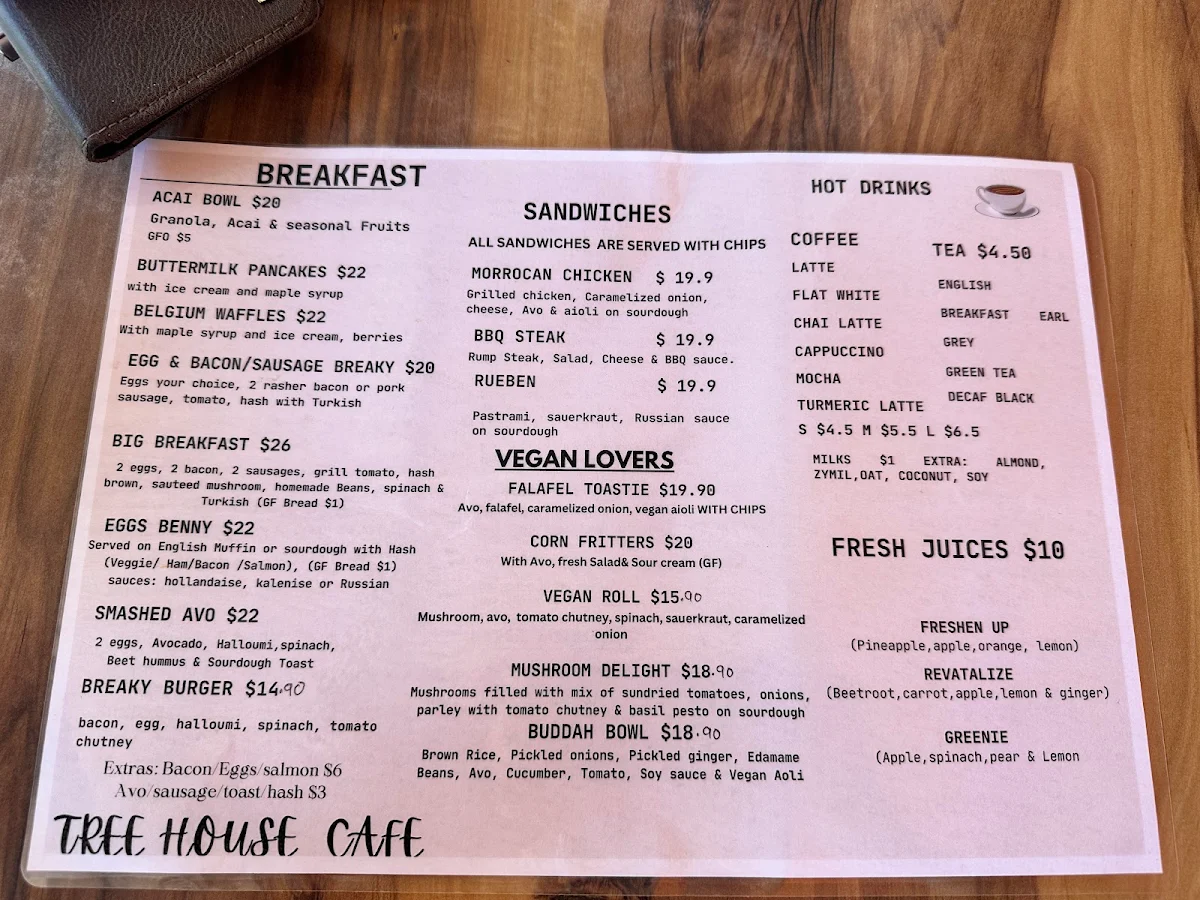 BREAKFAST
ACAI BOWL $20
Granola, Acai & seasonal Fruits
GFO $5
BUTTERMILK PANCAKES $22
with ice cream and maple syrup
BELGIUM WAFFLES $22
With maple syrup and ice cream, berries
EGG & BACON/SAUSAGE BREAKY $20
Eggs your choice, 2 rasher bacon or pork
sausage, tomato, hash with Turkish
BIG BREAKFAST $26
2 eggs, 2 bacon, 2 sausages, grill tomato, hash
brown, sauteed mushroom, homemade Beans, spinach &
Turkish (GF Bread $1)
EGGS BENNY $22
Served on English Muffin or sourdough with Hash
(Veggie/ Ham/Bacon /Salmon), (GF Bread $1)
sauces: hollandaise, kalenise or Russian
SMASHED AVO $22
2 eggs, Avocado, Halloumi,spinach,
Beet hummus & Sourdough Toast
BREAKY BURGER $14.90
bacon, egg, halloumi, spinach, tomato
chutney
Extras: Bacon/Eggs/salmon $6
Avo/sausage/toast/hash $3
TREE HOUSE CAFE
SANDWICHES
ALL SANDWICHES ARE SERVED WITH CHIPS
MORROCAN CHICKEN $ 19.9
Grilled chicken, Caramelized onion,
cheese, Avo & aioli on sourdough
BBQ STEAK $ 19.9
Rump Steak, Salad, Cheese & BBQ sauce.
RUEBEN $ 19.9
Pastrami, sauerkraut, Russian sauce
on sourdough
VEGAN LOVERS
FALAFEL TOASTIE $19.90
Avo, falafel, caramelized onion, vegan aioli WITH CHIPS
CORN FRITTERS $20
With Avo, fresh Salad& Sour cream (GF)
VEGAN ROLL $15.90
Mushroom, avo, tomato chutney, spinach, sauerkraut, caramelized
onion
MUSHROOM DELIGHT $18.90
Mushrooms filled with mix of sundried tomatoes, onions,
parley with tomato chutney & basil pesto on sourdough
BUDDAH BOWL $18.90
Brown Rice, Pickled onions, Pickled ginger, Edamame
Beans, Avo, Cucumber, Tomato, Soy sauce & Vegan Aoli
HOT DRINKS
COFFEE
LATTE
FLAT WHITE
CHAI LATTE
CAPPUCCINO
MOCHA
TURMERIC LATTE
S $4.5 M $5.5 L $6.5
TEA $4.50
ENGLISH
BREAKFAST EARL
GREY
GREEN TEA
DECAF BLACK
MILKS $1 EXTRA: ALMOND,
ZYMIL,OAT, COCONUT, SOY
FRESH JUICES $10
FRESHEN UP
(Pineapple,apple,orange, lemon)
REVATALIZE
(Beetroot,carrot,apple,lemon & ginger)
GREENIE
(Apple,spinach,pear & Lemon